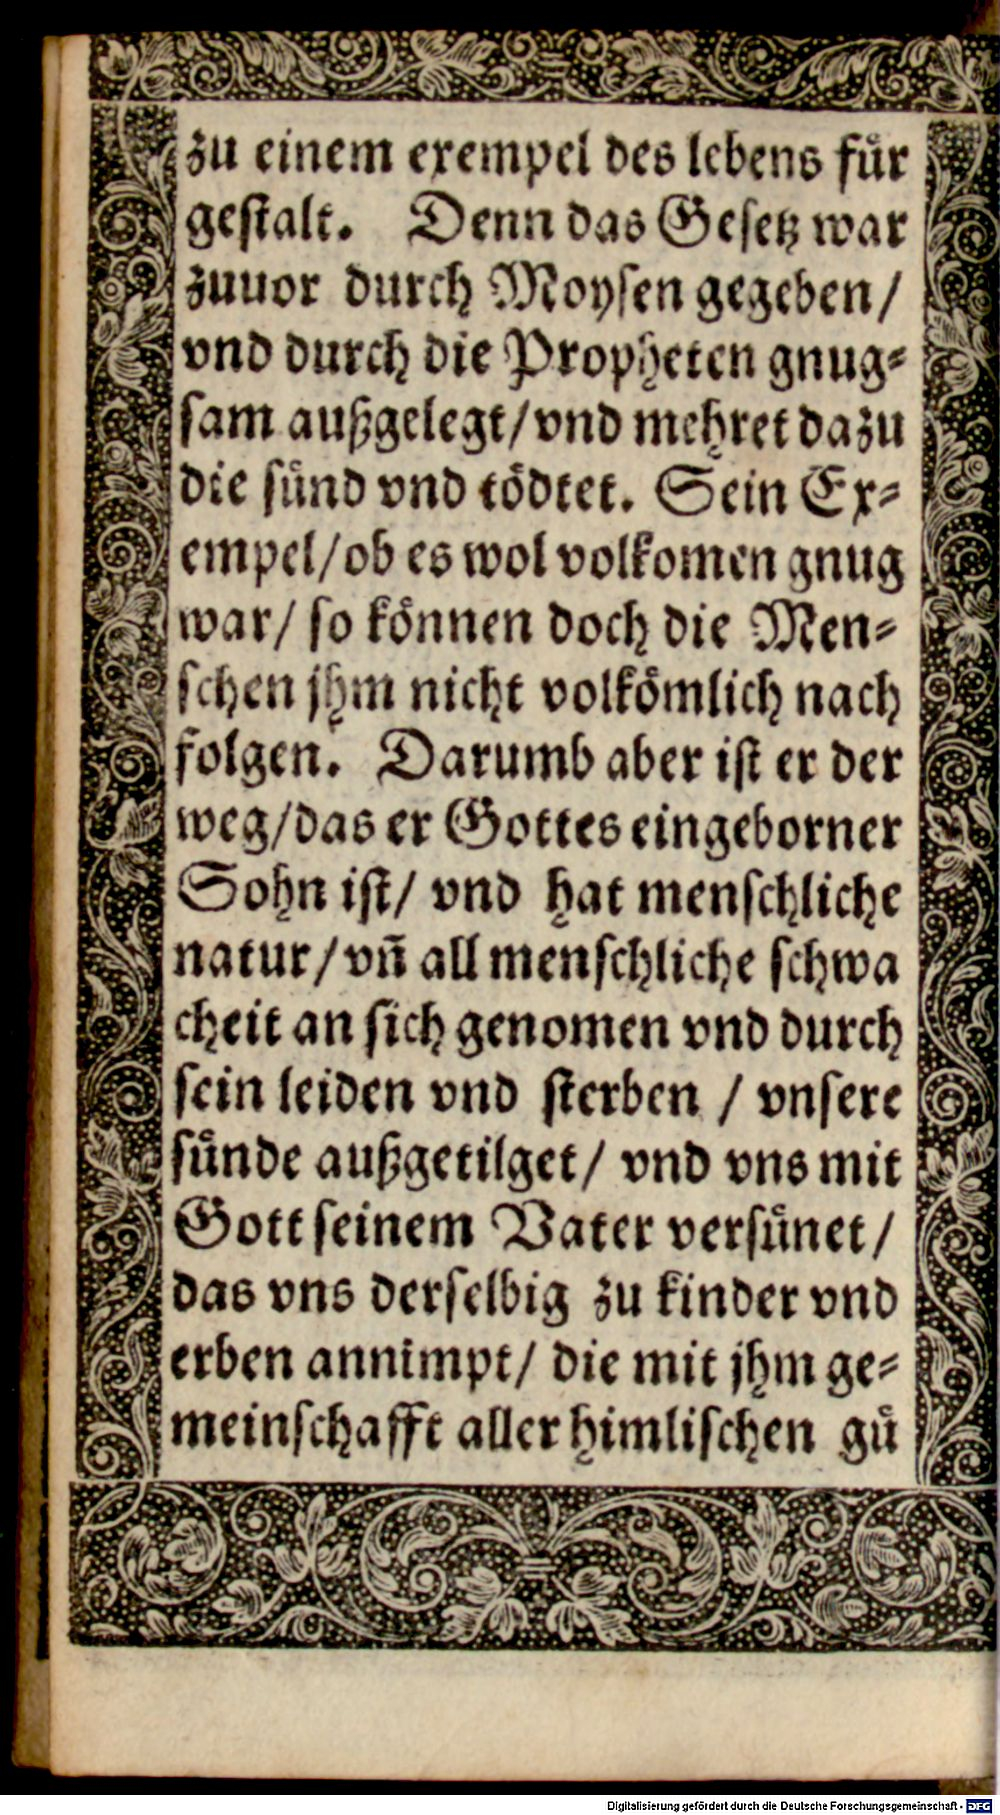 zu einem exempel des lebens fuͤr
gestalt. Denn das Gesetz war
zuuor durch Moysen gegeben/
vnd durch die Propheten gnug⸗
sam außgelegt/vnd mehret dazu
die suͤnd vnd toͤdtet. Sein Ex⸗
empel/ob es wol volkomen gnug
war/ so koͤnnen doch die Men⸗
schen jhm nicht volkoͤmlich nach
folgen. Darumb aber ist er der
weg/das er Gottes eingeborner
Sohn ist/ vnd hat menschliche
natur/vn̄ all menschliche schwa
cheit an sich genomen vnd durch
sein leiden vnd sterben / vnsere
suͤnde außgetilget/ vnd vns mit
Gott seinem Vater versuͤnet/
das vns derselbig zu kinder vnd
erben annimpt/ die mit jhm ge⸗
meinschafft aller himlischen guͤ
Digitalisierung gefördert durch die Deutsche Forschungsgemeinschaft - DFG